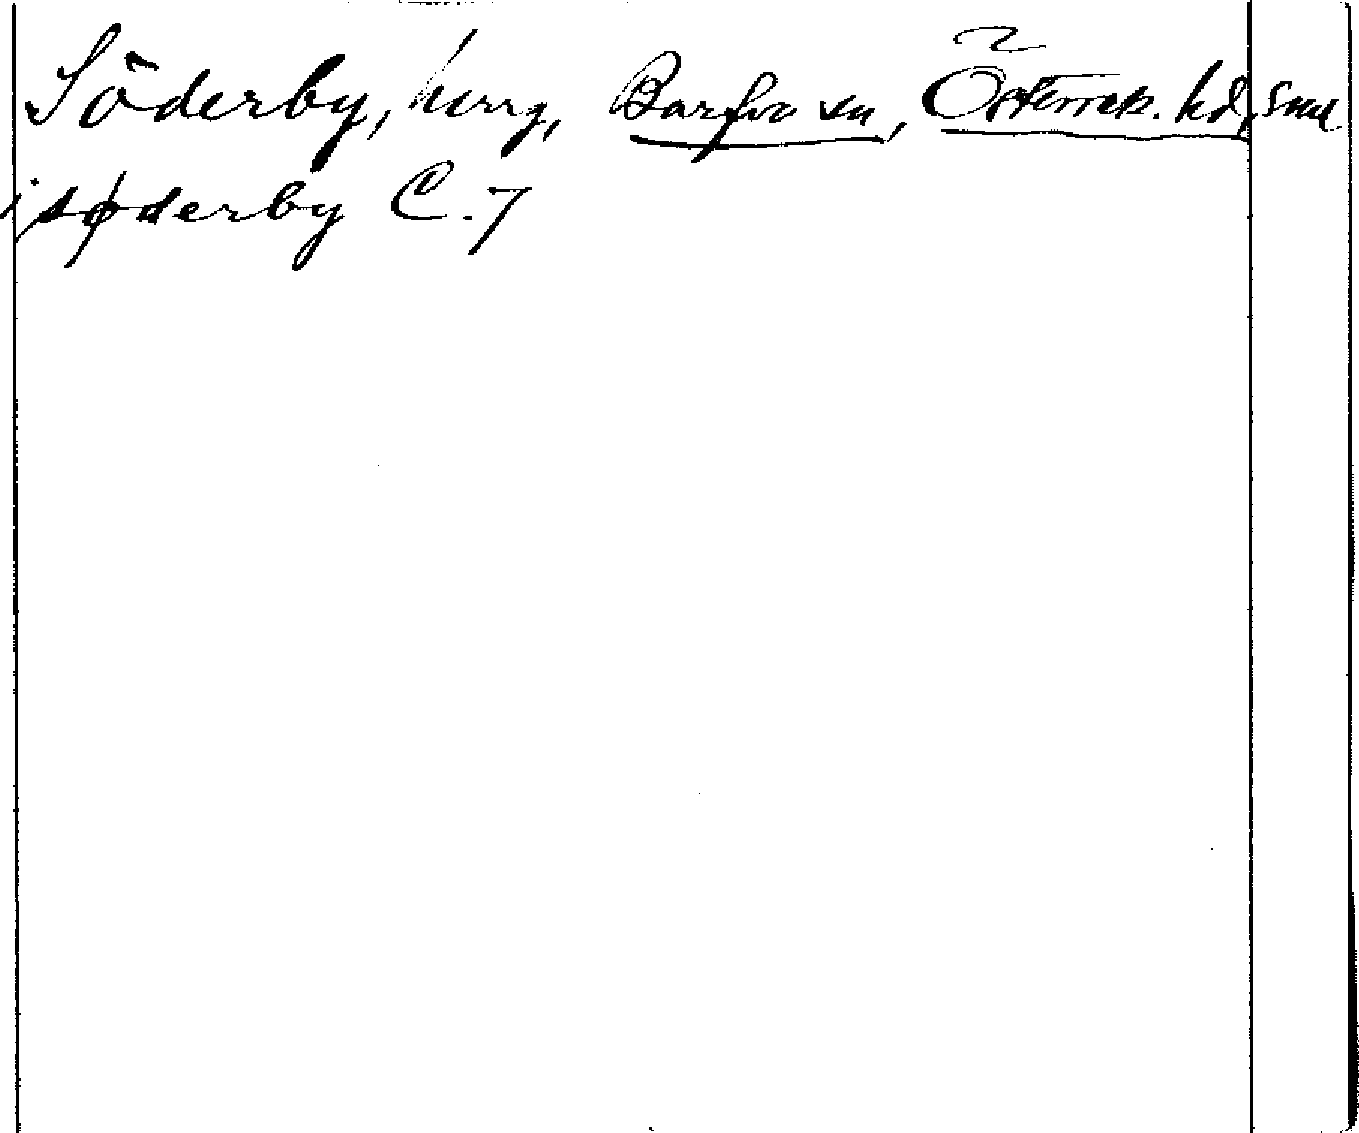 Söderby, herrg, Barfva sn, Österrek. hd, Sml
i søderby C. 7